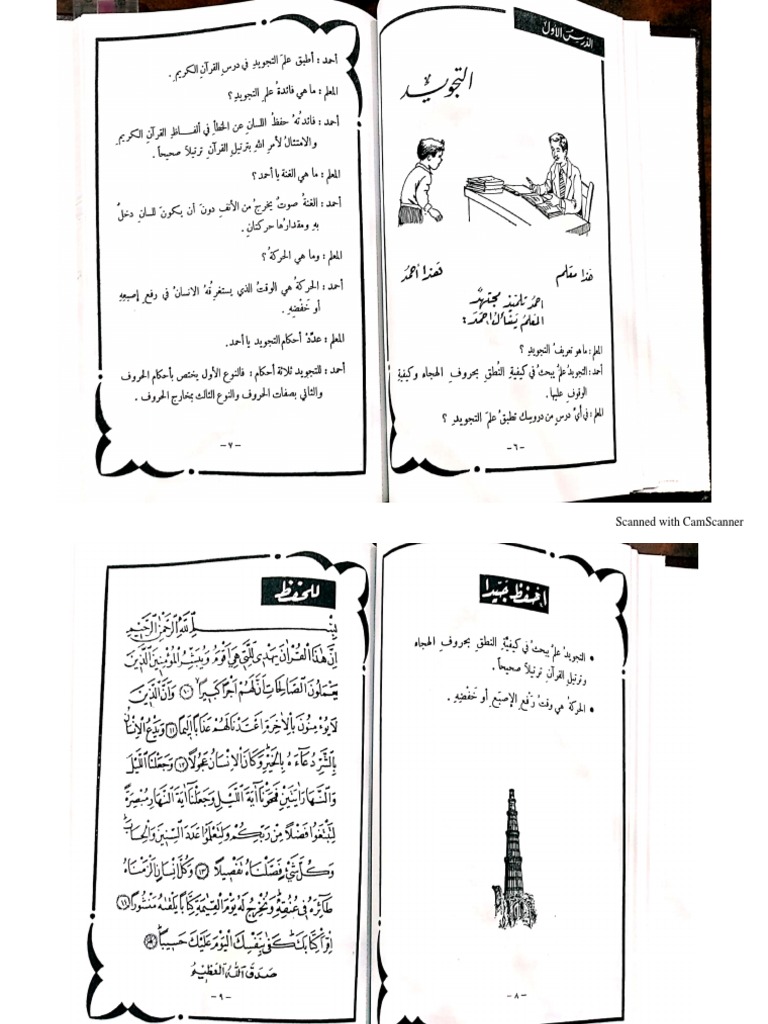 الدرس الأول
التجويد
هَذا معَلم
وَهَذا أحمَد
احمَد تلميذ مجتهدٌ
المعَلمُ يَسْأَلُ احْمَدَ:
المعلم: ما هو تعريفُ التجويدِ ؟
أحمد: التجويدُ علمٌ يبحثُ في كيفيةِ النُطقِ بحروفِ الهجاء وكيفيةِ
الوقوف عليها.
المعلم: في أيِّ درسٍ من دروسِك تطبقُ علمَ التجويدِ ؟
-٦-
أحمد : أطبق علمَ التجويدِ في درسِ القرآنِ الكريمِ.
المعلم: ما هي فائدةُ علمِ التجويدِ؟
أحمد: فائدتُهُ حفظُ اللسانِ عن الخطأِ في ألفاظِ القرآنِ الكريمِ
والامتثالُ لأمرِ اللهِ بترتيلِ القرآنِ ترتيلاً صحيحاً .
المعلم : ما هي الغنة يا أحمد؟
أحمد: الغنةُ صوتٌ يخرجُ من الأنفِ دونَ أن يكونَ للسانِ دخلٌ
بهِ ومقدارُها حركتانِ.
المعلم: وما هي الحركةُ؟
أحمد: الحركةُ هي الوقتُ الذي يستغرقُهُ الانسانُ في رفعِ إصبعِهِ
أو خَفْضِهِ.
المعلم: عدِّدْ أحكامَ التجويد يا أحمد.
أحمد: للتجويد ثلاثة أحكام: فالنوع الأول يختص بأحكام الحروف
والثاني بصفات الحروف والنوع الثالث بمخارج الحروف.
-٧-
Scanned with CamScanner
احفظ جَيدا
• التجويدُ علمٌ يبحثُ في كيفيةِ النطقِ بحروفِ الهجاه
وترتيلِ القرآنِ ترتيلاً صحيحاً .
• الحركةُ هي وقتُ رَفْعِ الإصبَعِ أو خَفْضِهِ .
-٨-
للحفظ
بِسْمِ اللَّهِ الرَّحْمَنِ الرَّحِيمِ
إِنَّ هَٰذَا الْقُرْآنَ يَهْدِي لِلَّتِي هِيَ أَقْوَمُ وَيُبَشِّرُ الْمُؤْمِنِينَ الَّذِينَ
يَعْمَلُونَ الصَّالِحَاتِ أَنَّ لَهُمْ أَجْرًا كَبِيرًا ۝٩ وَأَنَّ الَّذِينَ
لَا يُؤْمِنُونَ بِالْآخِرَةِ أَعْتَدْنَا لَهُمْ عَذَابًا أَلِيمًا ۝١٠ وَيَدْعُ الْإِنْسَانُ
بِالشَّرِّ دُعَاءَهُ بِالْخَيْرِ وَكَانَ الْإِنْسَانُ عَجُولًا ۝١١ وَجَعَلْنَا اللَّيْلَ
وَالنَّهَارَ آيَتَيْنِ فَمَحَوْنَا آيَةَ اللَّيْلِ وَجَعَلْنَا آيَةَ النَّهَارِ مُبْصِرَةً
لِتَبْتَغُوا فَضْلًا مِنْ رَبِّكُمْ وَلِتَعْلَمُوا عَدَدَ السِّنِينَ وَالْحِسَابَ
وَكُلَّ شَيْءٍ فَصَّلْنَاهُ تَفْصِيلًا ۝١٢ وَكُلَّ إِنْسَانٍ أَلْزَمْنَاهُ
طَائِرَهُ فِي عُنُقِهِ وَنُخْرِجُ لَهُ يَوْمَ الْقِيَامَةِ كِتَابًا يَلْقَاهُ مَنْشُورًا ۝١٣
اقْرَأْ كِتَابَكَ كَفَىٰ بِنَفْسِكَ الْيَوْمَ عَلَيْكَ حَسِيبًا ۝١٤
صَدَقَ اللهُ العَظِيمُ
-٩-